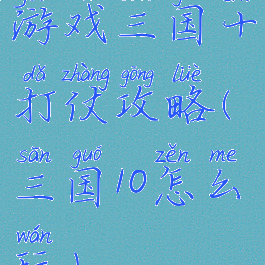 游戏三国十
dǎ zhàng gōng lüè
打仗攻略(
sān guó zěn me
三国10怎么
wán